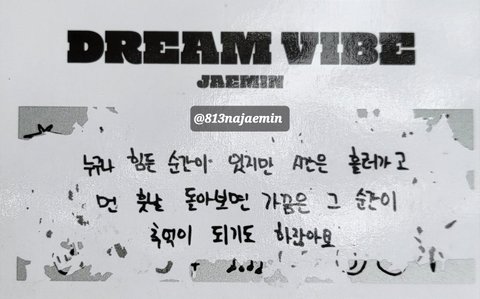 DREAM VIBE
JAEMIN
@813najaemin
누구나 힘든 순간이 있지만 시간은 흘러가고
먼 훗날 돌아보면 가끔은 그 순간이
추억이 되기도 하잖아요